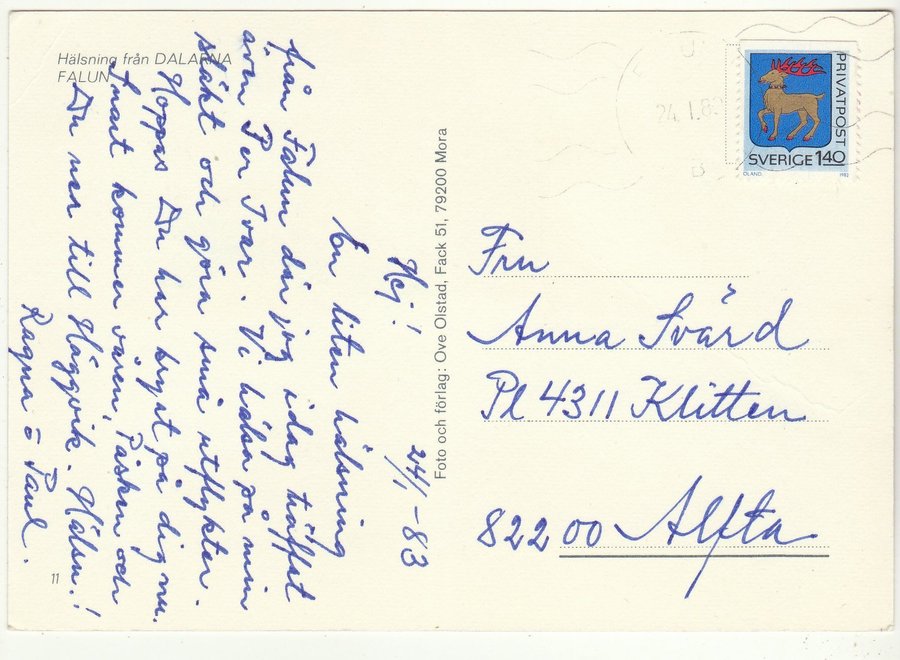 Hälsning från DALARNA
FALUN
Hej! 24/1-83
En liten hälsning
från Falun där jag idag träffat
även Per Ivar. Vi hälsa på min
släkt och göra små utflykter.
Hoppas Du har kryat på dig nu.
Snart kommer våren, Påsken och
Du ner till Häggvik. Hälsn.!
Ragna o Paul.
11
Foto och förlag: Ove Olstad, Fack 51, 79200 Mora
PRIVATPOST
SVERIGE 1.40
ÖLAND. 1982
Fru
Anna Svärd
Pl 4311 Klitten
822 00 Alfta